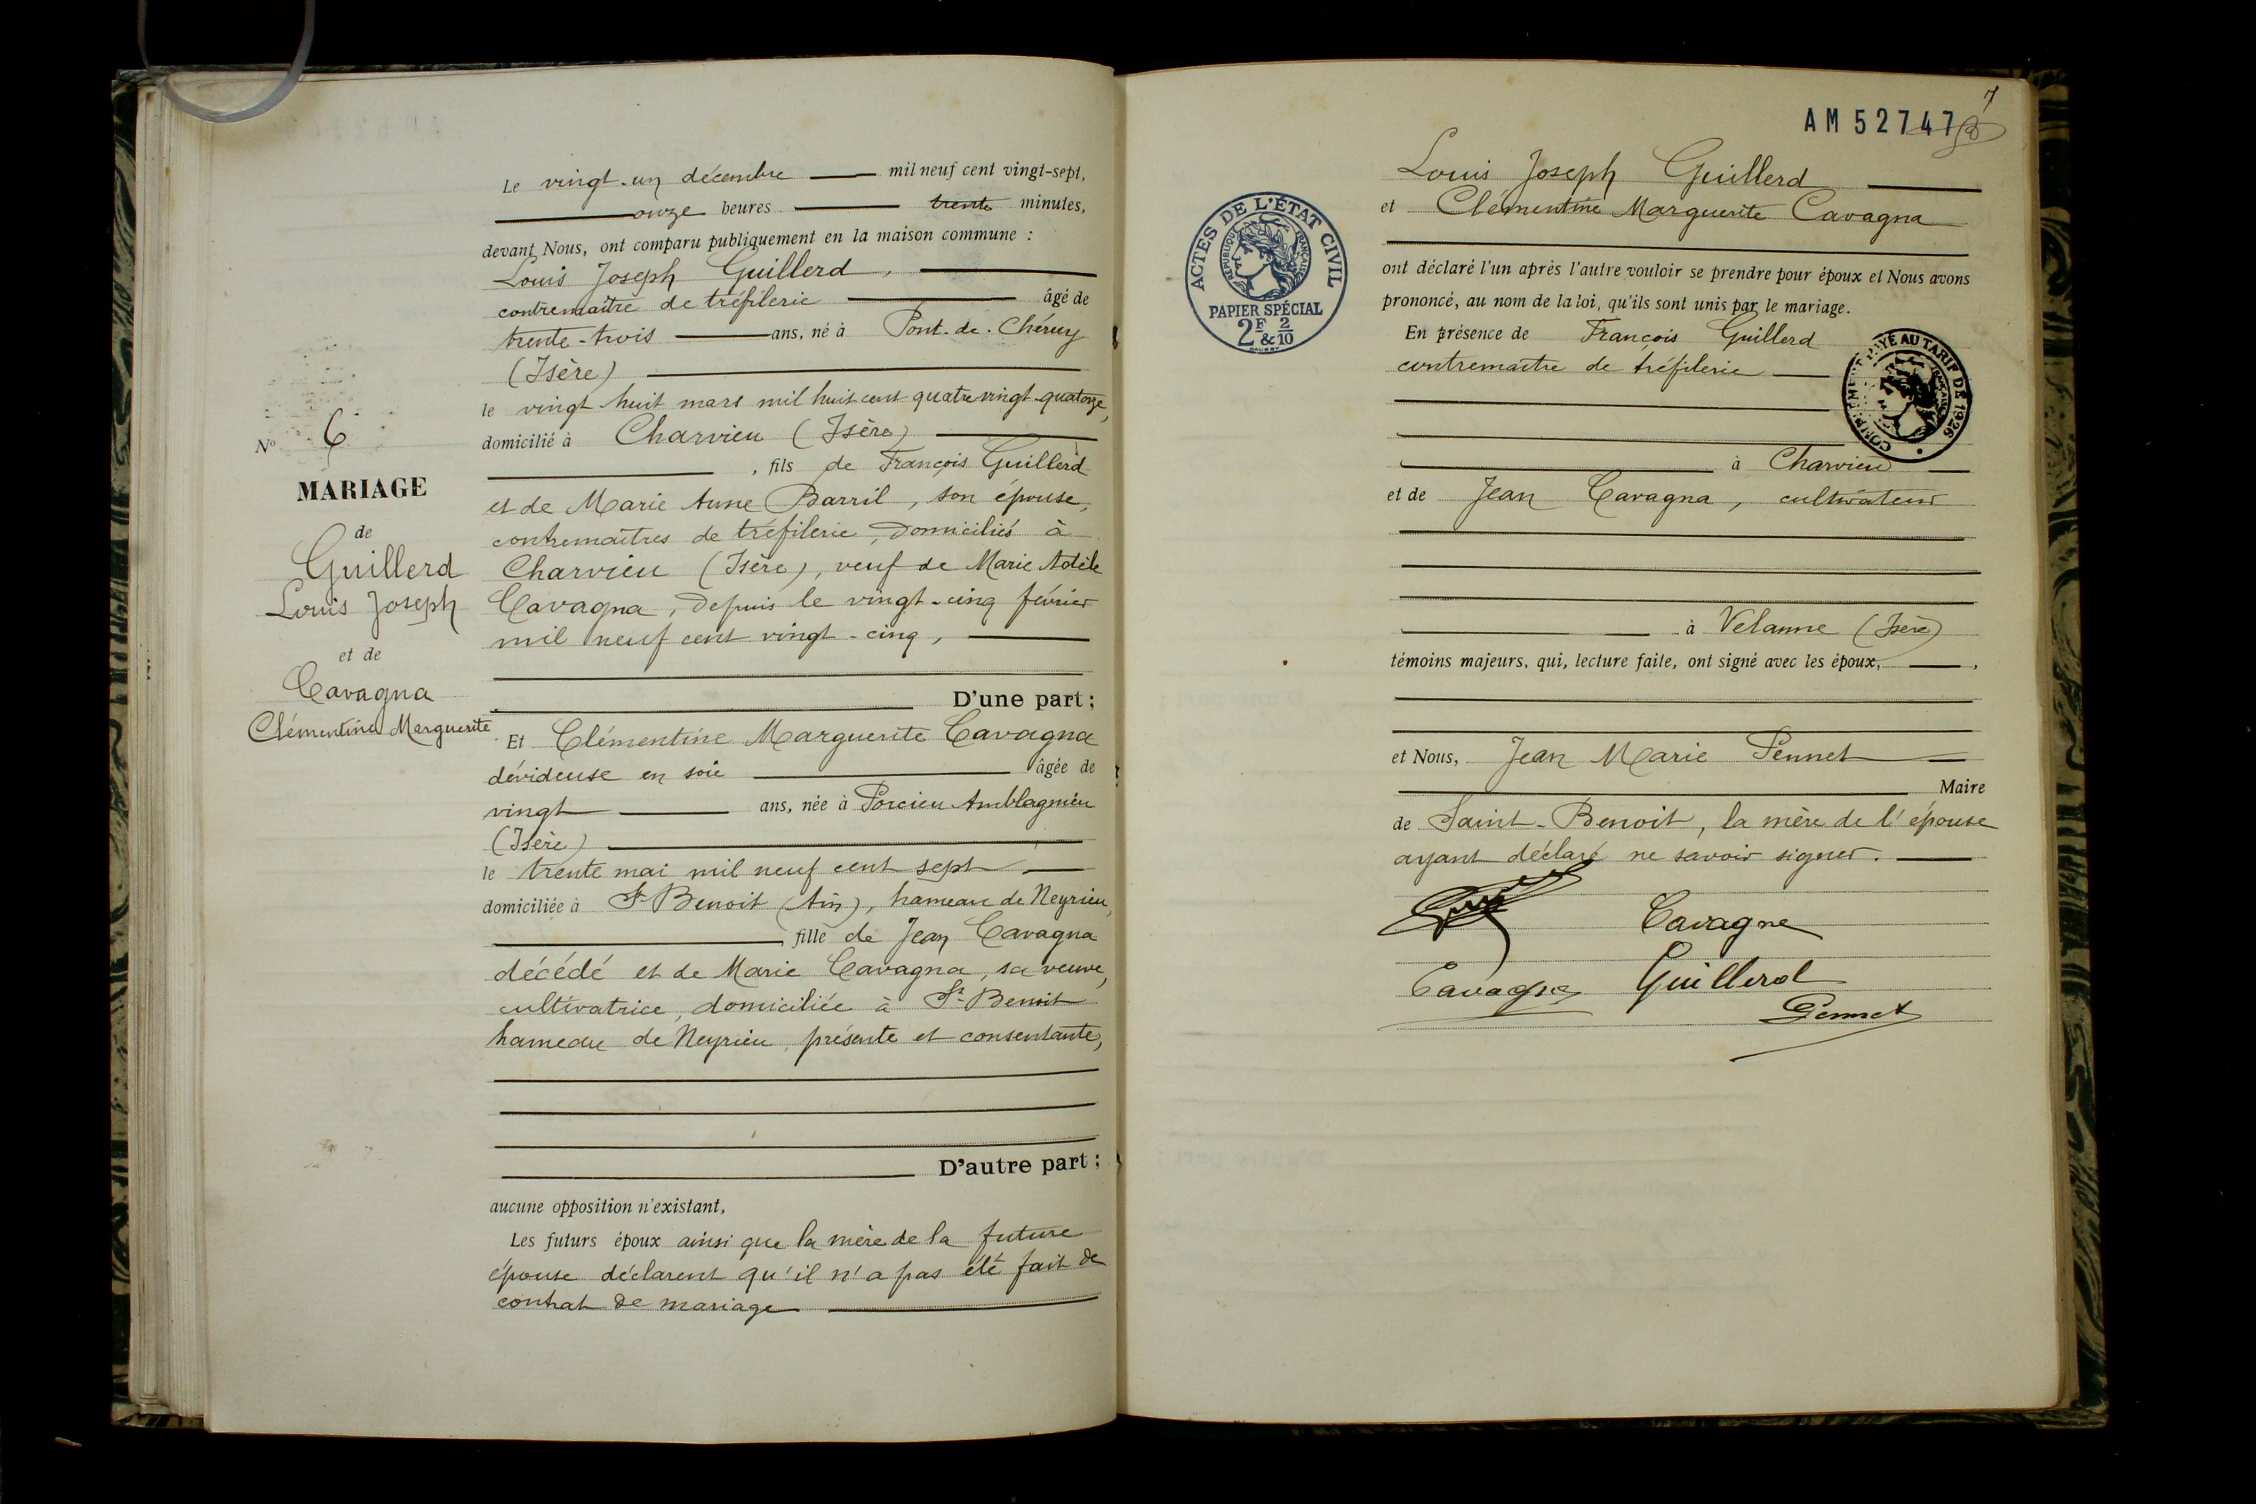 N° 6
MARIAGE
de
Guillerd
Louis Joseph
et de
Cavagna
Clémentine Marguerite
Le vingt-un décembre mil neuf cent vingt-sept,
onze heures trente minutes,
devant Nous, ont comparu publiquement en la maison commune :
Louis Joseph Guillerd,
contremaître de tréfilerie âgé de
trente-trois ans, né à Pont-de-Chéruy
(Isère)
le vingt-huit mars mil huit cent quatre vingt-quatorze,
domicilié à Charvieu (Isère)
, fils de François Guillerd
et de Marie Anne Barril, son épouse,
contremaîtres de tréfilerie, domiciliés à
Charvieu (Isère), veuf de Marie Adèle
Cavagna, depuis le vingt-cinq février
mil neuf cent vingt-cinq,
D'une part ;
Et Clémentine Marguerite Cavagna
dévideuse en soie âgée de
vingt ans, née à Porcieu Amblagnieu
(Isère)
le trente mai mil neuf cent sept
domiciliée à St Benoit (Ain), hameau de Neyrieu,
fille de Jean Cavagna
décédé et de Marie Cavagna, sa veuve,
cultivatrice, domiciliée à St Benoit
hameau de Neyrieu, présente et consentante,
D'autre part ;
aucune opposition n'existant,
Les futurs époux ainsi que la mère de la future
épouse déclarent qu'il n'a pas été fait de
contrat de mariage
7
AM 527477
ACTES DE L'ÉTAT CIVIL
RÉPUBLIQUE FRANÇAISE
PAPIER SPÉCIAL
2F & 2/10
Louis Joseph Guillerd
et Clémentine Marguerite Cavagna
ont déclaré l'un après l'autre vouloir se prendre pour époux et Nous avons
prononcé, au nom de la loi, qu'ils sont unis par le mariage.
En présence de François Guillerd
contremaître de tréfilerie
COMPLÉMENT PAYÉ AU TARIF DE 1926
à Charvieu
et de Jean Cavagna, cultivateur
à Velanne (Isère)
témoins majeurs, qui, lecture faite, ont signé avec les époux,
et Nous, Jean Marie Pennet
Maire
de Saint-Benoit, la mère de l'épouse
ayant déclaré ne savoir signer.
Cavagne
Cavagna Guillerd
Pennet